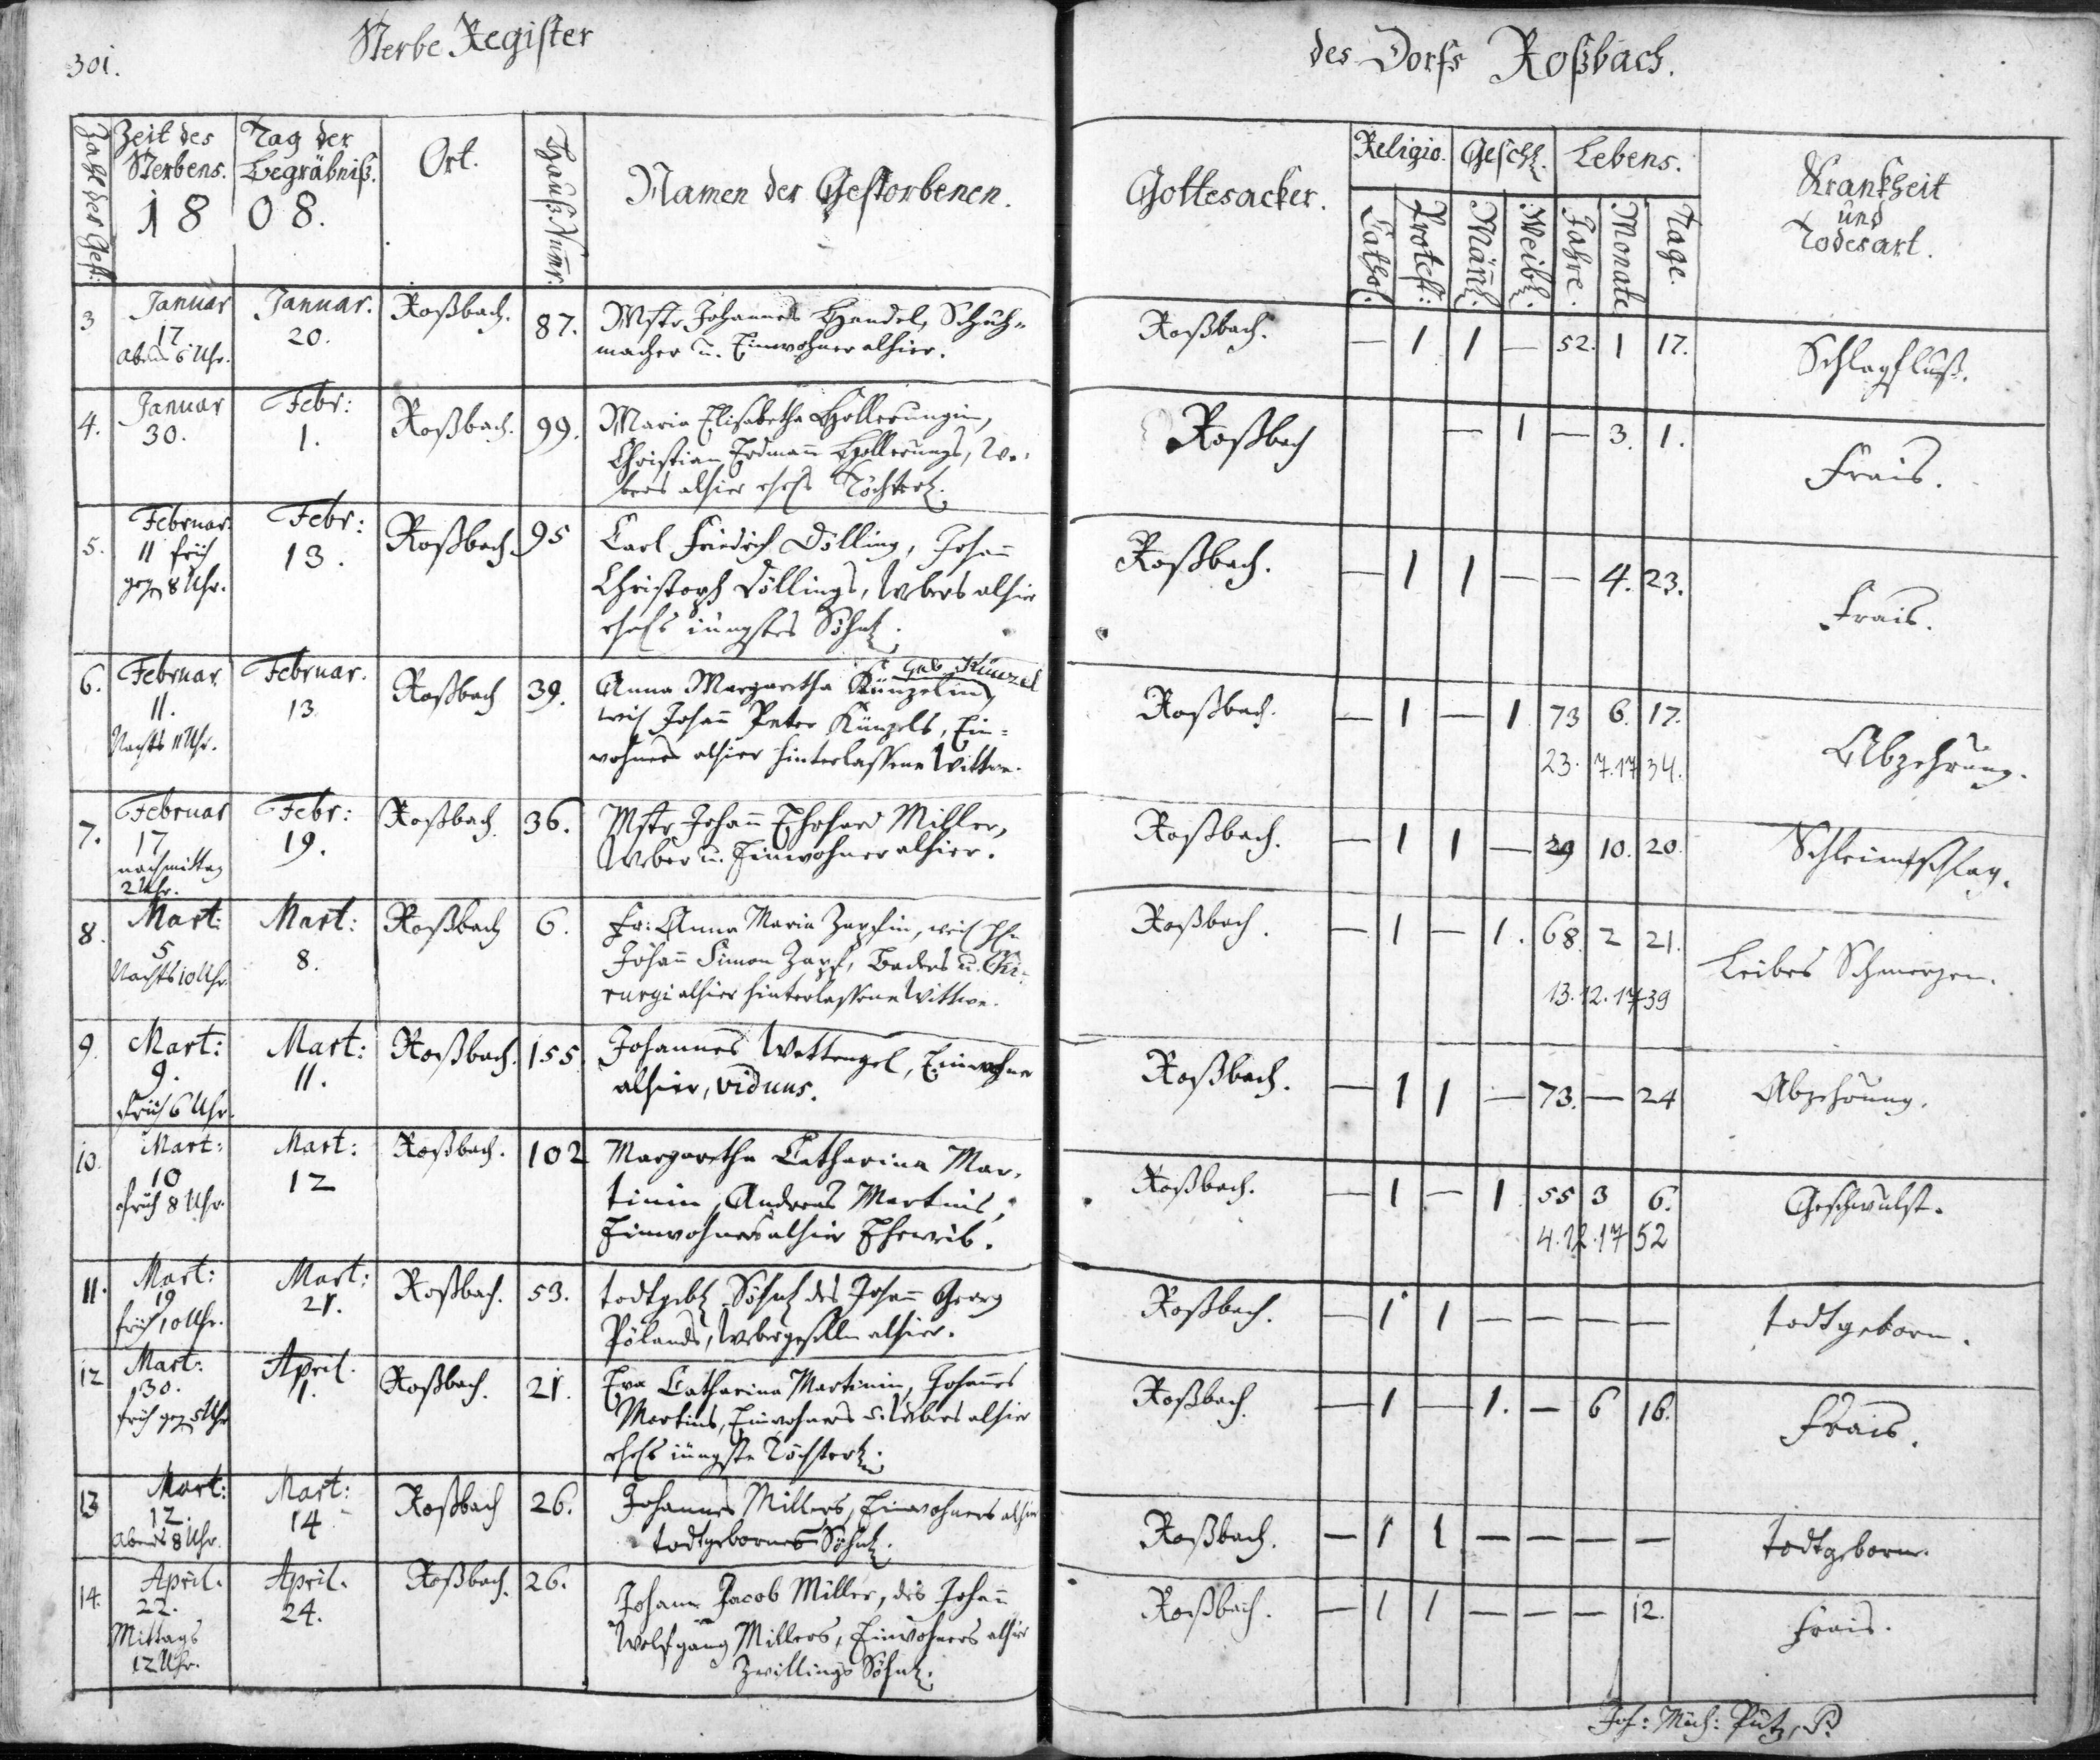 301.
Sterbe Register
des Dorfs Roßbach.
Zahl der Gest:
Zeit des Sterbens.
Tag der Begräbniß.
1808.
Ort.
Hauß Numr.
Namen der Gestorbenen.
Gottesacker.
Religio.
Cathol.
Protest:
Geschl:
Mänl.
Weibl.
Lebens.
Jahre.
Monate
Tage.
Krankheit
und
Todesart.
3 Januar 17 Abends 6 Uhr. Januar. 20. Roßbach. 87. Mstr Johannes Hendel, Schuh=
macher u. Einwohner alhier.
Roßbach. — 1 1 — 52. 1 17. Schlagfluß.
4. Januar 30. Febr: 1. Roßbach. 99. Maria Elisabetha Hollerungin,
Christian Erdmann Hollerungs, We-
bers alhier ehel Töchterl.
Roßbach — 1 — 3. 1. Frais.
5. Februar. 11 früh gegen 8 Uhr. Febr: 13. Roßbach. 95 Carl Friedrich Dölling, Johann
Christoph Döllings, Webers alhier
ehels jüngstes Söhnl.
Roßbach. — 1 1 — — 4. 23. Frais.
6. Februar 11. Nachts 11 Uhr. Februar. 13. Roßbach 39. Anna Margaretha Künzelin, geb. Künzel
weil Johann Peter Künzels, Ein=
wohners alhier hinterlassene Wittwe.
Roßbach. — 1 — 1. 73 6. 17. Abzehrung.
23. 7. 17 34.
7. Februar 17 nachmittag 2 Uhr. Febr: 19. Roßbach. 36. Mstr Johann Ehrhard Miller,
Weber u. Einwohner alhier.
Roßbach. — 1 1 — 29 10. 20.
8. Mart: 5 Nachts 10 Uhr. Mart: 8. Roßbach 6. Fr: Anna Maria Zapfin, weil H
Johann Simon Zapf, Baders u. Chi-
rurgi alhier hinterlassene Wittwe.
Roßbach. — 1 — 1. 68. 2 21. Leibes Schmerzen.
13. 12. 1739
9. Mart: 9. früh 6 Uhr. Mart: 11. Roßbach. 155. Johannes Wettengel, Einwohner
alhier, viduus.
Roßbach. — 1 1 — 73. — 24 Abzehrung.
10. Mart: 10 früh 8 Uhr. Mart: 12 Roßbach. 102 Margaretha Catharina Mar-
tinin, Andreas Martins,
Einwohners alhier Eheweib.
Roßbach. — 1 — 1 55 3 6. Geschwulst.
4. 12. 17 52
11. Mart: 19 früh 10 Uhr. Mart: 21. Roßbach. 53. todtgebl Söhnl des Johann Georg
Pölands, Webergesellen alhier.
Roßbach. — 1 1 — — — — todtgeborn.
12 Mart: 30. früh geg 5 Uhr April. 1. Roßbach. 21. Eva Catharina Martinin, Johannes
Martins, Einwohners u. Webers alhier
ehels jüngste Töchterl.
Roßbach. — 1 — 1. — 6 16. Frais.
13 Mart: 12. Abends 8 Uhr. Mart: 14 Roßbach 26. Johannes Millers, Einwohners alhier
todtgebornes Söhnl.
Roßbach. — 1 1 — — — — todtgeborn.
14. April. 22. Mittags 12 Uhr. April. 24. Roßbach. 26. Johann Jacob Miller, des Johann
Wolfgang Millers, Einwohners alhier
Zwillings Söhnl.
Roßbach. — 1 1 — — — 12. Frais.
Joh: Mich: Putz, P.